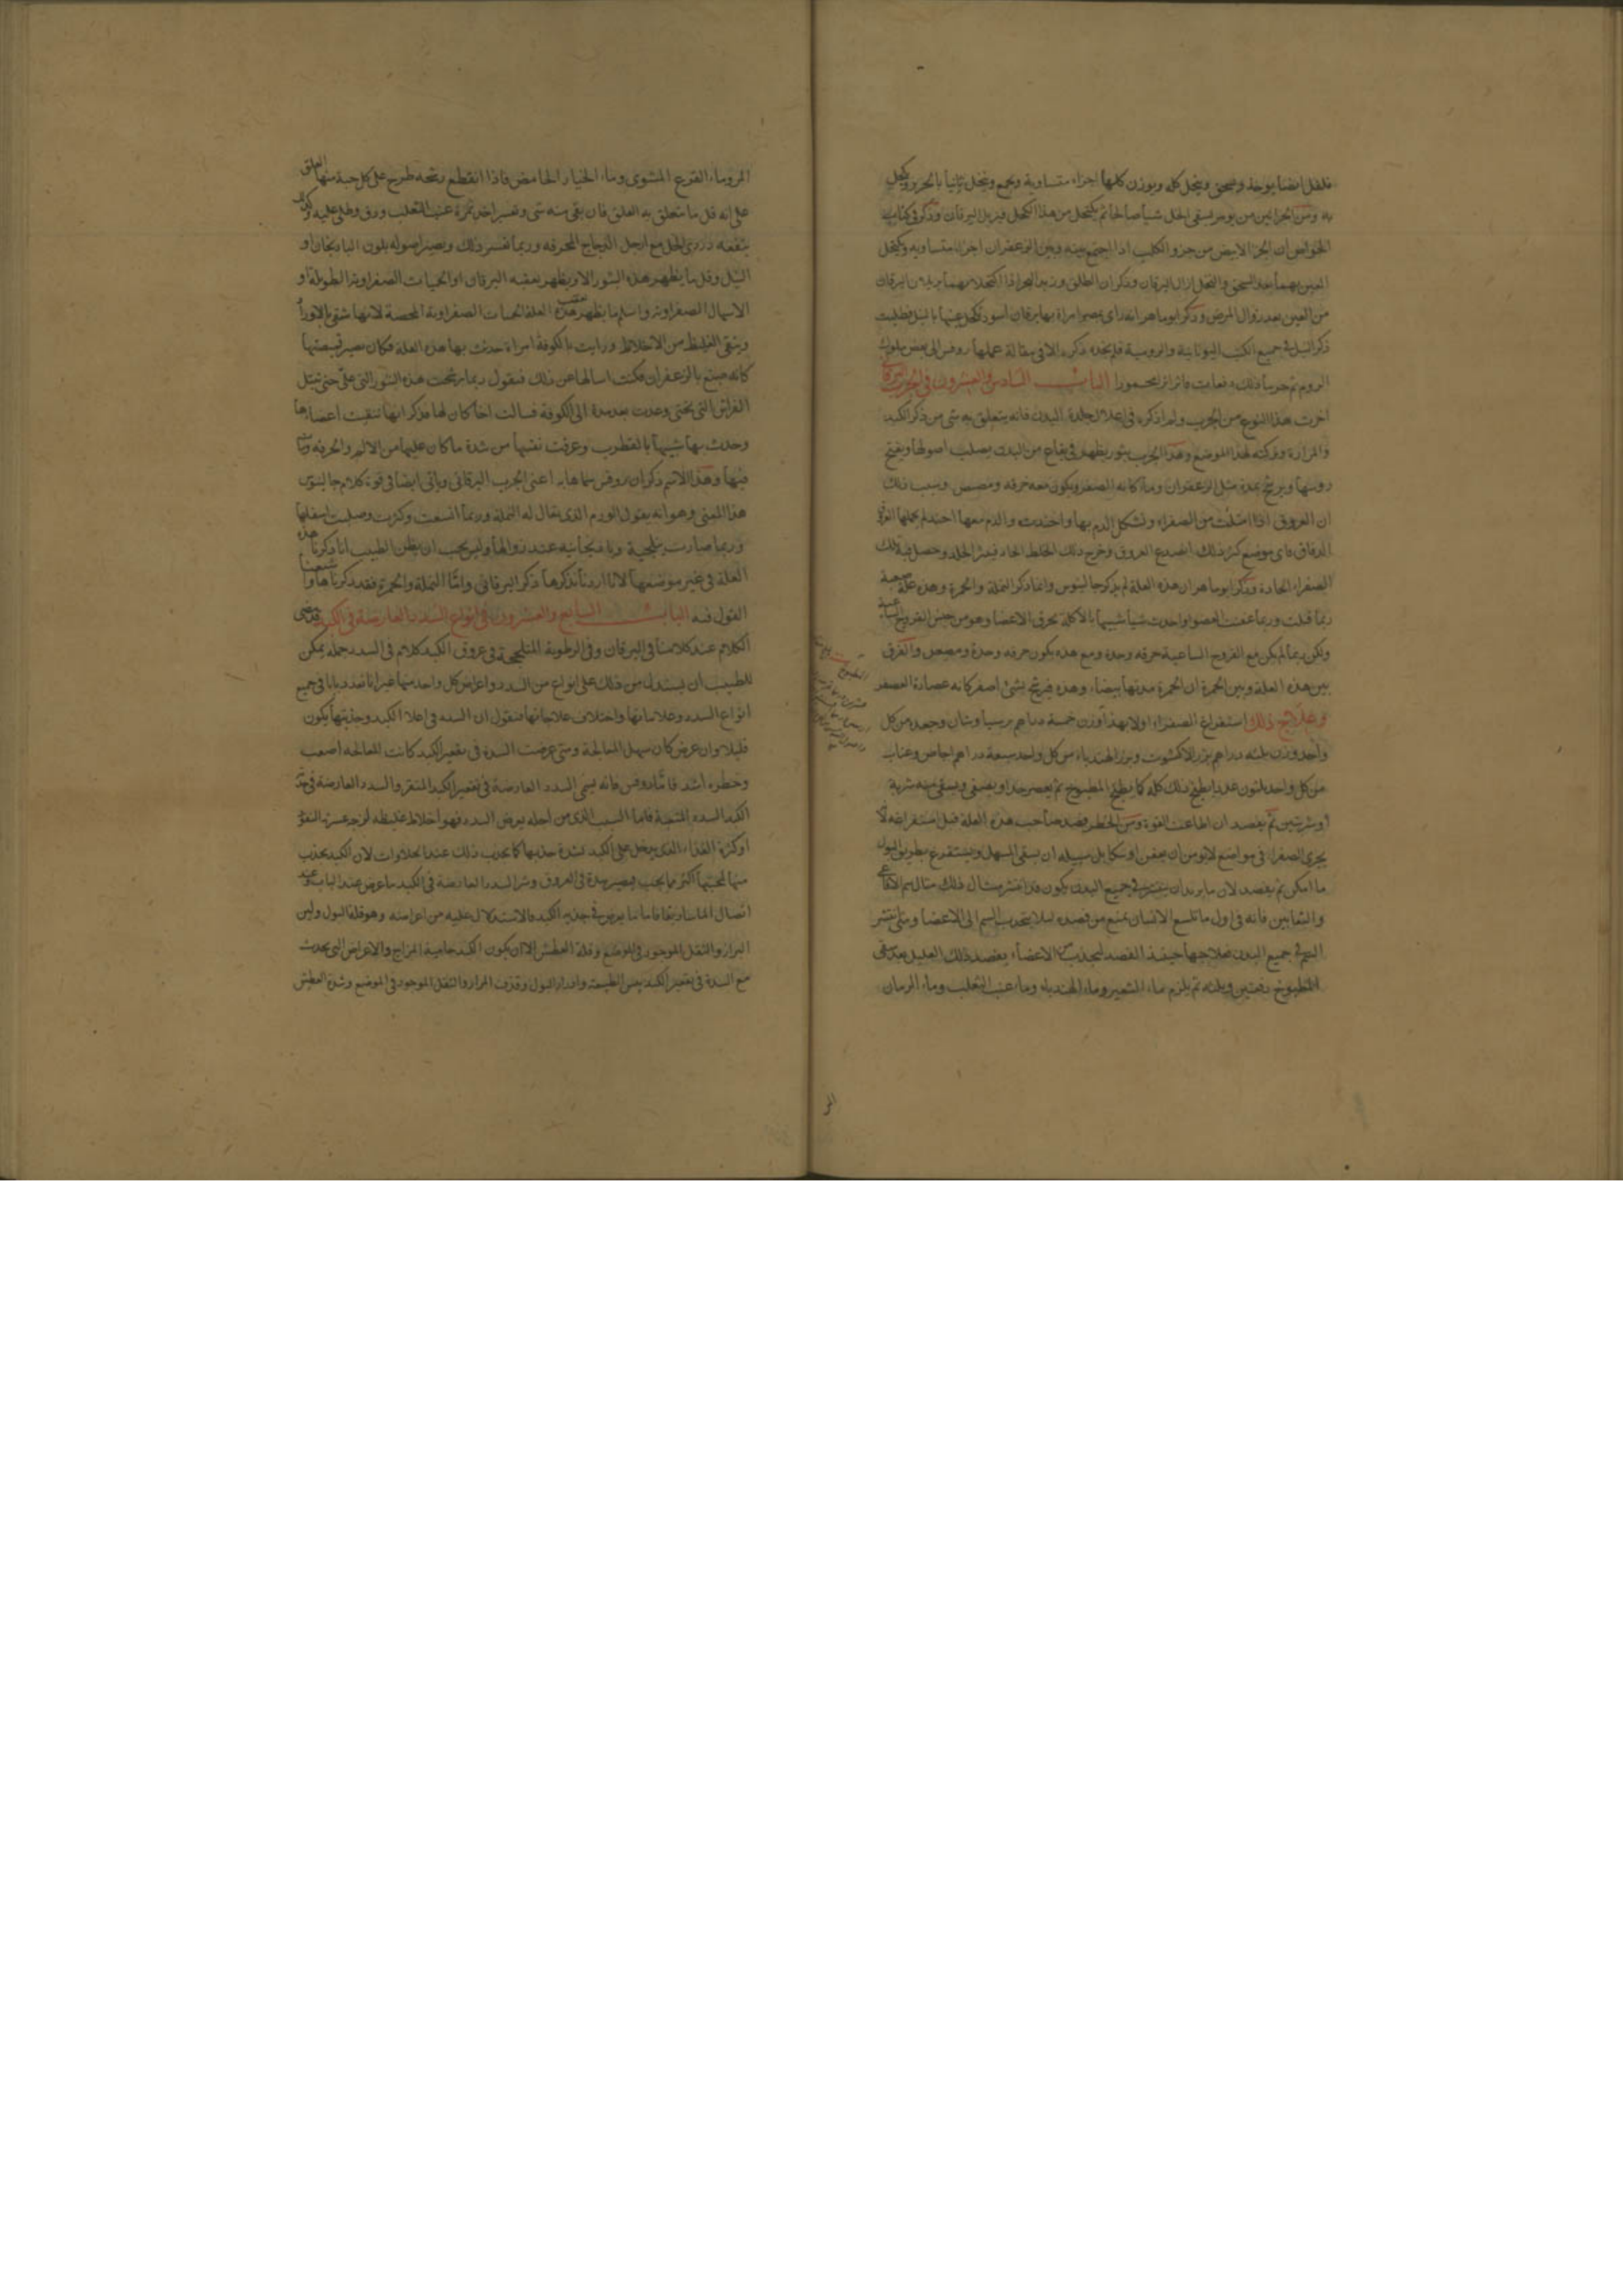 فلفل ايضا يوخذ ويسحق وينخل كله ويوزن كلها اجزاء متساوية ويجمع وينخل ثانيا بالحرير ويكحل
به ومن الخزانين من يومر بسقى الخل شيأ صالحا ثم يكتحل من هذا الكحل فيزيل اليرقان وذكر فى كتابه
الخواص ان الجزء الابيض من خرو الكلب اذا اجتمع بينه وبين الزعفران اجزاء متساويه ويكحل
العين بهما بعد السحق والنخل ازال اليرقان وذكر ان الطلق وزبد البحر اذا اكتحلا بهما يزيلان اليرقان
من العين بعد زوال المرض وذكر ابو ماهر انه راى بمصر امراة بها يرقان اسود فكحل عينها بالنيل فطلبت
ذكر النيل فى جميع الكتب اليونانية والرومية فلم نجده ذكره الا فى مقالة عملها روفس الى بعض ملوك
الروم ثم جربنا ذلك دفعات فاثر اثرا محمودا الباب السادس والعشرون فى الجرب اليرقانى
اخرت هذا النوع من الجرب ولم اذكره فى اعلال جلدة البدن فانه يتعلق به شى من ذكر الكبد
والمرارة وتركته لهذا الموضع وهذا الجرب بثور يظهر فى بقاع من البدن يصلب اصولها ويفتح
روسها ويرشح بمدة مثل الزعفران وماء كانه الصفر ويكون معه حرقه ومضض وسبب ذلك
ان العروق اذا امتلأت من الصفراء وتشكل الدم بها واحتدت والدم معها احتد لم يحملها العروق
الدقاق فاى موضع كثر ذلك انصدع العروق وخرج ذلك الخلط الحاد فبثر الجلد وحصل فيه تلك
الصفراء الحادة وذكر ابو ماهر ان هذه العلة لم يذكر جالينوس وانما ذكر النملة والحمرة وهذه علة صعبة
ربما قتلت وربما عفنت العضو واحدث شيأ شبيها بالاكلة يحرق الاعضا وهو من جنس القروح الساعية
ولكن ربما لم يكن مع القروح الساعية حرقه وحدة ومع هذه يكون حرقه وحدة ومضض والفرق
بين هذه العلة وبين الحمرة ان الحمرة مدتها بيضاء وهذه فيرشح بشئ اصفر كانه عصارة العصفر
وعلاج ذلك استفراغ الصفراء اولا بهذا وزن خمسة دراهم برسياوشان وجعده من كل
واحد وزن ثلثه دراهم بزر الاكشوث وبزر الهندباء من كل واحد سبعة دراهم اجاص وعناب
من كل واحد ثلثون عددا يطبخ ذلك كله كما يطبخ المطبوخ ثم يعصر جيدا ويصفى ويسقى منه شربة
او شربتين ثم يفصد ان اطاعت القوة ومن الخطر فصد صاحب هذه العلة قبل استفراغه لا
يجرى الصفراء فى مواضع لا يومن ان يعفن او ينكا بل سبيله ان يسقى المسهل ويستفرغ بطريق البول
ما امكن ثم يفصد لان ما يريد ان ينتشر فى جميع البدن يكون قد انتشر مثال ذلك مثال سم الافاعى
والثعابين فانه فى اول ما تلسع الانسان يمنع من فصده ليلا ينجذب السم الى الاعضا ومتى انتشر
السم فى جميع البدن فعلاجها حينئذ الفصد لينجذب من الاعضاء يفصد ذلك العليل بعد سقى
المطبوخ دفعتين وثلثه ثم يلزم ماء الشعير وماء الهندباء وماء عنب الثعلب وماء الرمان
المز
المز وماء القرع المشوى وماء الخيار الحامض فاذا انقطع رشحه طرح على كل حبة منها العلق
على انه قل ما يتعلق به العلق فان بقى منه شى وتفسر اخذ ثمرة عنب الثعلب ودق وطلى عليه
ينفعه دردى الخل مع ارجل الدجاج المحرقه وربما تفسر ذلك ويصير اصوله بلون الباذنجان او
النيل وقل ما يظهر هذه البثور الا ويظهر بعقبه اليرقان او الحميات الصفراوية الطويلة او
الاسهال الصفراوية واسلم ما يظهر هذه عقب العلة الحميات الصفراوية المحصة لانها تنقى الاوراد
وينقى الغليظ من الاخلاط ورايت بالكوفة امراة حدث بها هذه العلة فكان يصير قميصتها
كانه صبغ بالزعفران فكنت اسالها عن ذلك فيقول ربما رشحت هذه البثور التى علىّ حتى تبتل
الفراش التى تحتى وعدت بعد مدة الى الكوفة فسالت اخا كان لها فذكر انها تنقبت اعضاؤها
وحدث بها شبيها بالقطرب وعرقت نفسها من شدة ما كان عليها من الالم والحرقه
فيها وهذا الاسم ذكر ان روفس سماها به اعنى الجرب اليرقانى وياتى ايضا فى قوة كلام جالينوس
هذا المعنى وهو انه يقول الورم الذى يقال له النملة وربما اتسعت وكثرت وصلبت اسفلها
وربما صارت بنفسجية وباذنجانيه عند زوالها وليس يجب ان يظن الطبيب انا ذكرنا هذه
العلة فى غير موضعها لانا اردنا نذكرها ذكر اليرقانى وامّا النملة والحمرة فقد ذكرناها واشبعنا
القول فيه الباب السابع والعشرون فى انواع السدد العارضة فى الكبد قد مضى
الكلام عند كلامنا فى اليرقان وفى الرطوبة المتلججة فى عروق الكبد كلام فى السدد جمله يمكن
للطبيب ان يستدل من ذلك على انواع من السدد واعراض كل واحد منها غير انا نفرد بابا فى جميع
انواع السدد وعلاماتها واختلاف علاجاتها فنقول ان السده فى اعلا الكبد وحدبتها يكون
قليلا وان عرض كان سهل المعالجة ومتى عرضت السدة فى تقعير الكبد كانت المعالجه اصعب
وخطره اشد فامّا روفس فانه يسمى السدد العارضة فى تقعير الكبد المنقر والسدد العارضة فى حدبة
الكبد السده فاما السبب الذى من اجله يعرض السدد فهو اخلاط غليظه لزجه عسرة النفوذ
او كثرة الغذاء الذى يدخل على الكبد لشدة جذبها كما يجذب ذلك عند الحلاوات لان الكبد يجذب
منها لمحبتها اكثر مما يجب فيصير سدة فى العروق وشر السدد العارضة فى الكبد ما عرض عند الباب وعند
اتصال الماساريقا فاما ما يعرض فى حدبة الكبد فالاستدلال عليه من اعراضه وهو قلة البول ولين
البراز والثقل الموجود فى الموضع وقلة العطش الا ان يكون الكبد حامية المزاج والاعراض التى يحدث
مع السدة فى تقعير الكبد يبس الطبيعة وادرار البول وقذف المرار والثقل الموجود فى الموضع وشدة العطش